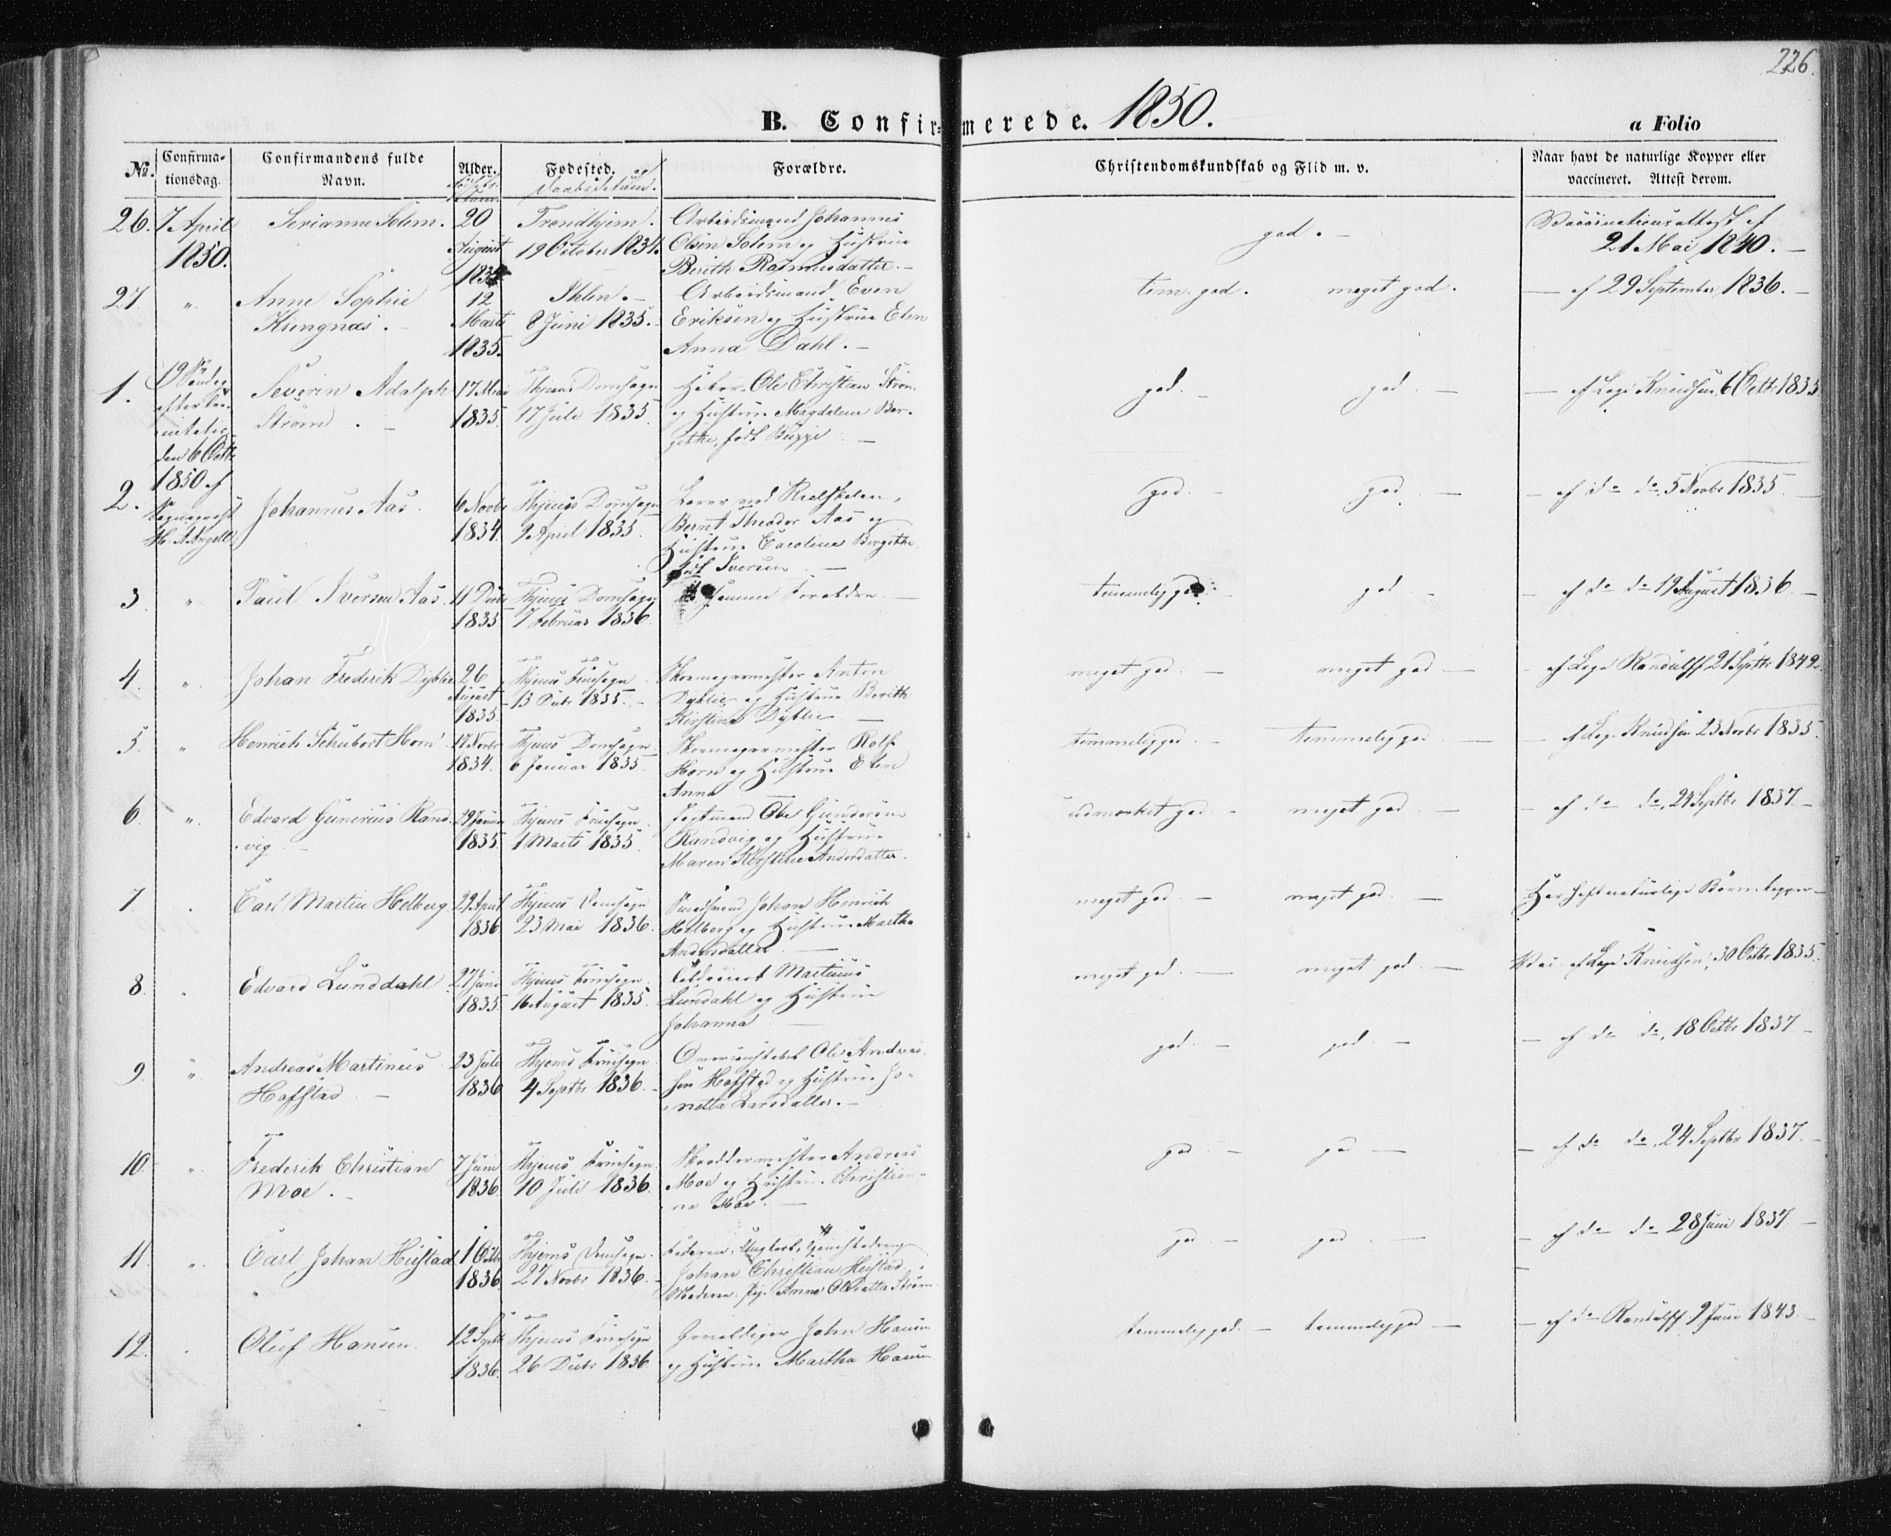 226.
B. Confirmerede. 1850.
a Folio
No. Confirmationsdag. Confirmandens fulde Navn. Alder. Fødested. og Daabsdatum. Forældre. Christendomskundskab og Flid m. v. Naar havt de naturlige Kopper eller vaccineret. Attest derom.
26. 7 April 1850. Serianna Solem. 20 August 1834 Trondhjem. 19 October 1834. Arbeidsmand Johannes Olsen Solem og Hustrue Berith Rasmusdatter. god. Vaccinationsattest af 21 Mai 1840.
27. " Anne Sophie 12 Marts 1835. Ihlen. 8 Juni 1835. Arbeidsmand Even Eriksen og Hustrue Elen Anna Dahl. tem. god. meget god. af 29 September 1836.
1. 19 Søndag efter Trinitatis den 6 Octb 1850 af Sogneprest H. Angell. Severin Adolph Strøm. 17 Mai 1835 Thjems Domsogn 17 Juli 1835. Ole Christian Strøm og Hustrue Magdalena Bergithe, født Bugge. god. god af Læge Knudsen 6 Octb 1835
2. Johannes Aas. 6 Novbr 1834. Thjems Domsogn 9 April 1835. Lærer ved Realskolen, Bernt Theodor Aas og Hustrue Caroline Bergithe født Iversen. god. god af do do 5 Novbr 1835.
3. " Paul Iversen Aas. 11 Decbr 1835 Thjems Domsogn 7 Februar 1836. Samme Forældre. temmelig god. god af do do 19 August 1836.
4. " Johan Frederik Dyblie 26 August 1835. Thjems Fruesogn 13 Decbr 1835. Skomagermester Anton Dyblie og Hustrue Berith Kirstina Dyblie. meget god. meget god af Læge Randulff 21 Septbr 1849.
5. " Henrich Schubert Horn 17 Novbr 1834. Thjems Domsogn 6 Januar 1835. Skomagermester Rolf Horn og Hustrue Elen Anna temmelig god. temmelig god af Læge Knudsen 23 Novbr 1835.
6. " Edvard Gunerius Randvig. 29 Januar 1835. Thjems Fruesogn. 1 Marts 1835. Ole Gundersen Randvig og Hustrue Maren Kirstine Andersdatter. udmærket god meget god af do do 24 Septbr 1837.
7 Carl Martin Helberg 29 April 1836. Thjems Domsogn 23 Mai 1836. Johan Henrich Helberg og Hustrue Martha Andersdatter meget god. meget god. Har haft naturlige Børnekopper
8. Edvard Lunddahl 27 Juni 1835 Thjems Fruesogn 16 August 1835. Martinus Lundahl og Hustrue Johanna meget god. meget god. Vac. af Læge Knudsen, 30 Octbr 1835.
9. " Andreas Martinus Hofstad. 23 Juli 1836 Thjems Fruesogn 4 Septbr 1836. Ole Andreassen Hofstad og Hustrue Jonetta Larsdatter. god. god. af do do. 18 Octbr 1837
10. " Frederik Christian Moe. 7 Juni 1836. Thjems Fruesogn. 10 Juli 1836. Skræddermester Andreas Moe og Hustrue Christianna Moe. god god af do do. 24 Septbr 1837.
11 " Carl Johan Hustad 1 Octbr 1836. Thjems Domsogn. 27 Novbr 1836. Faderen: Ungkarl, Tjenestedreng Johan Christian Hustad. Moderen Pig. Anne Olletta Strøm god god af do do 28 Juni 1837.
12. Oluf Hansen. 12 Septb 1836. Thjems Fruesogn 26 Decbr 1836 Gevaldiger John Hansen og Hustrue Martha Hansen temmelig god. temmelig god af do Randulff 9 Juni 1843